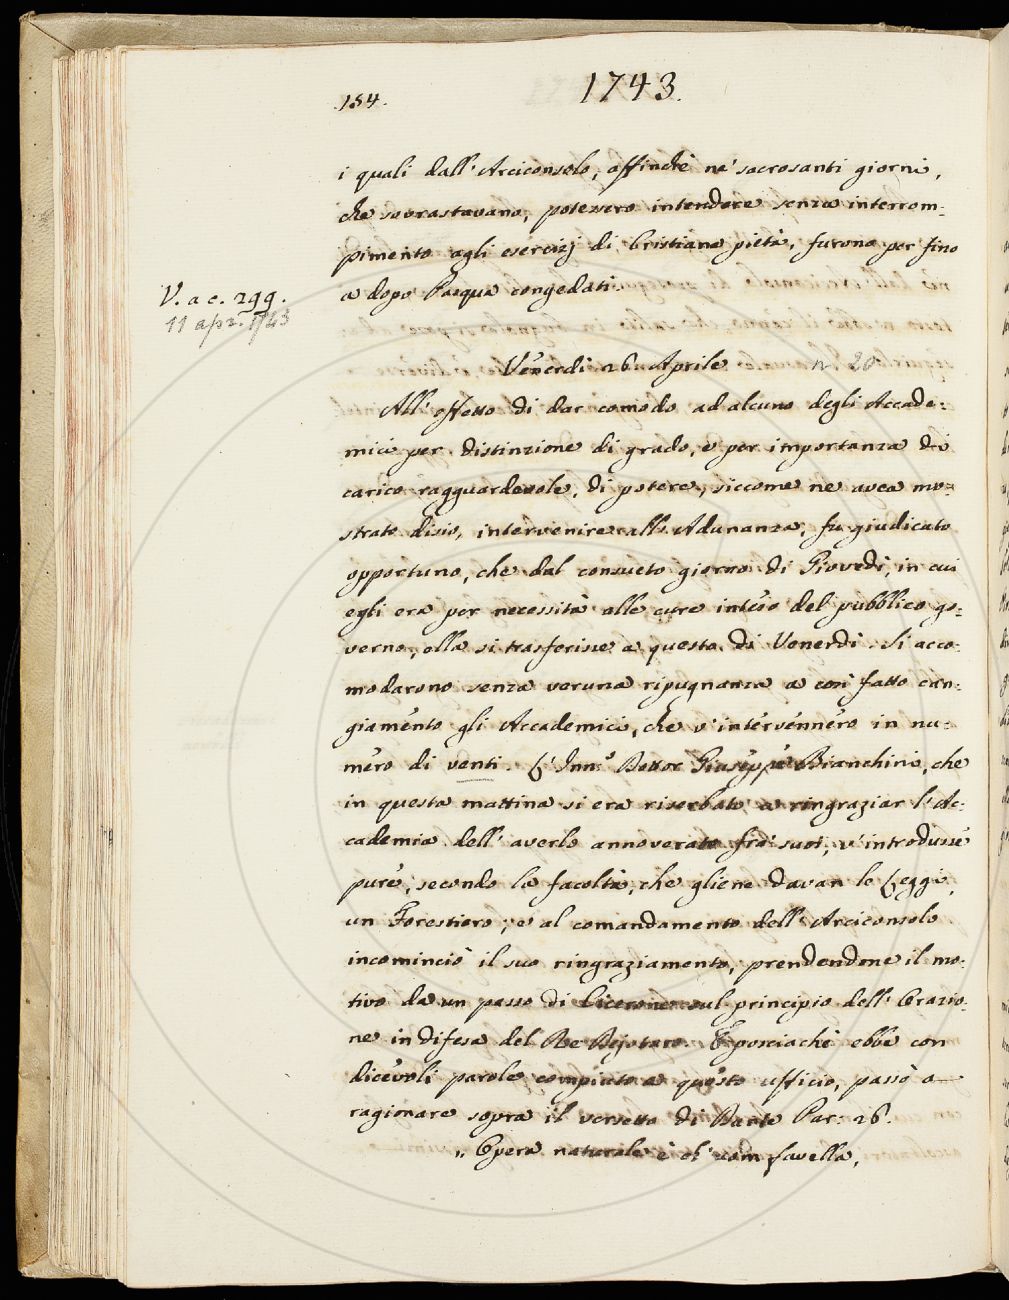 .154.
1743.
i quali dall' Arciconsolo, affinchè ne' sacrosanti giorni,
che sovrastavano, potessero intendere senza interrom-
pimento agli esercizj di Cristiana pietà, furono per fino
a dopo Pasqua congedati.
V. a c. 299.
11 apr. 1743
Venerdì 26 Aprile
n 20
All' effetto di dar comodo ad alcuno degli Accade-
mici per distinzione di grado, e per importanza di
carico ragguardevole, di potere, siccome ne avea mo-
strato disio, intervenire all' Adunanza, fu giudicato
opportuno, che dal consueto giorno di Giovedì, in cui
egli era per necessità alle cure inteso del pubblico go-
verno, ella si trasferisse a questo di Venerdì. Si acco-
modarono senza veruna ripugnanza a così fatto can-
giamento gli Accademici, che v' intervennero in nu-
mero di venti. L' Inn.o Dottor Giuseppe Bianchini, che
in questa mattina si era riserbato a ringraziar l' Ac-
cademia dell' averlo annoverato fra' suoi, v' introdusse
pure, secondo la facoltà, che gliene davan le Leggi,
un Forestiero; e al comandamento dell' Arciconsolo
incominciò il suo ringraziamento, prendendone il mo-
tivo da un passo di Cicerone sul principio dell' Orazio-
ne in difesa del Re Dejotaro. E posciachè ebbe con
dicevoli parole compiuto a questo ufficio, passò a
ragionare sopra il versetto di Dante Par: 26.
„ Opera naturale è ch' uom favella,